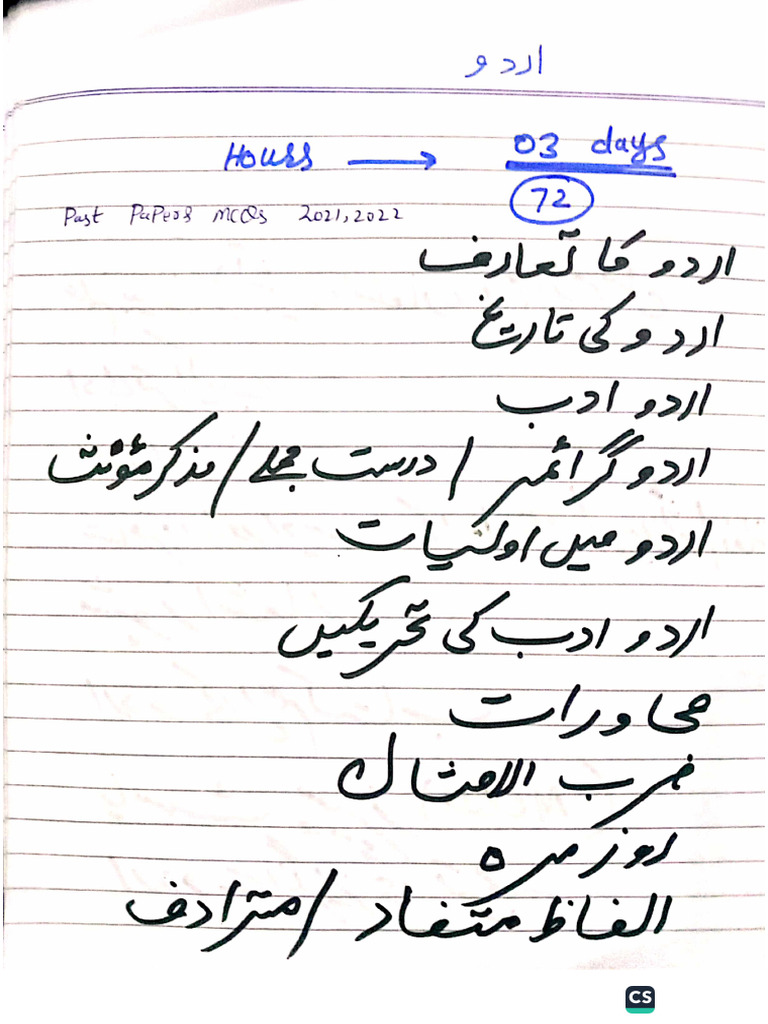 اردو
Hours → 03 days
72
Past Papers MCQs 2021,2022
اردو کا تعارف
اردو کی تاریخ
اردو ادب
اردو گرائمر / درست جملے / مذکر مؤنث
اردو میں اولیات
اردو ادب کی تحریکیں
محاورات
ضرب الامثال
روزمرہ
الفاظ متضاد / مترادف
CS